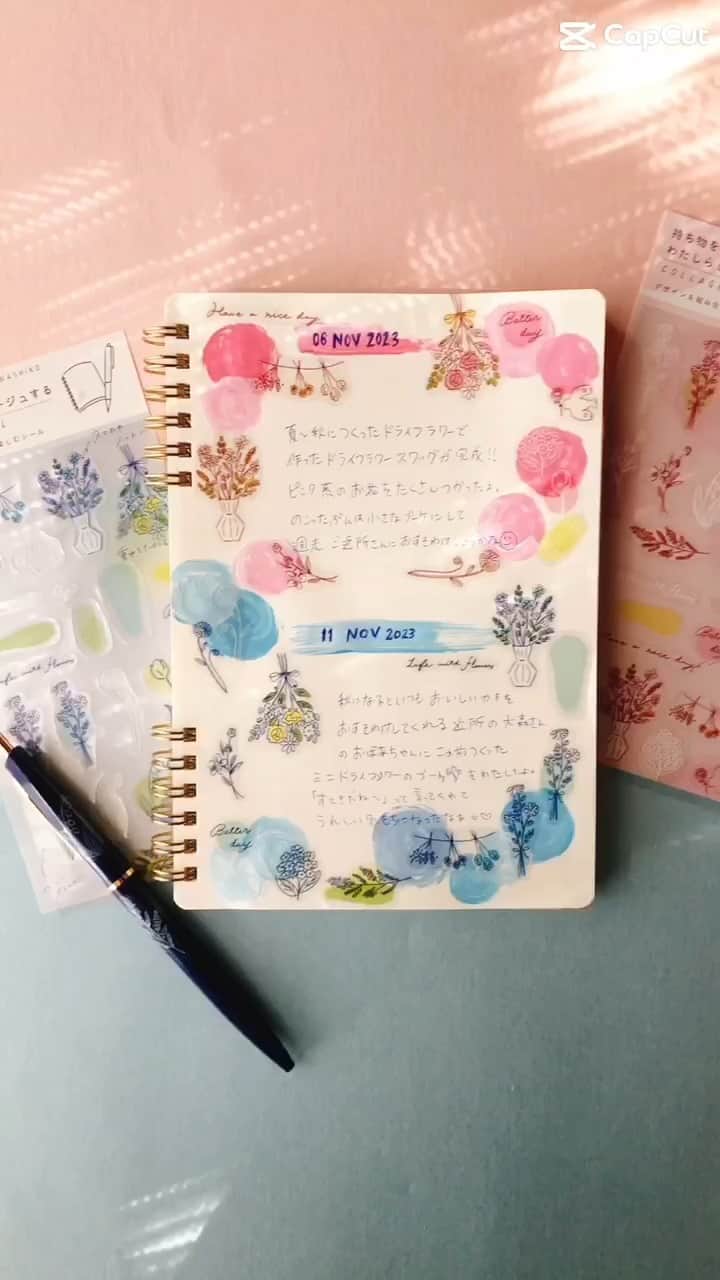 CapCut
持ち物を
わたしら
COLLAG
Have a nice day
Better
day
06 NOV 2023
夏〜秋につくったドライフラワーで
作ったドライフラワースワッグが完成!!
ピンク系のお花をたくさんつかったよ。
のこったぶんは小さなブーケにして
週末 ご近所さんにおすそわけ
11 NOV 2023
Life with flowers
秋になるといつも おいしいカキを
おすそわけしてくれる 近所の 大森さん
のおばあちゃんに この前つくった
ミニドライフラワーの ブーケ をわたしたよ。
「すてきだね〜」って 言ってくれて
うれしい気もちになったなぁ
Better
day
ージュする
Life with flowers
Have a nice day!